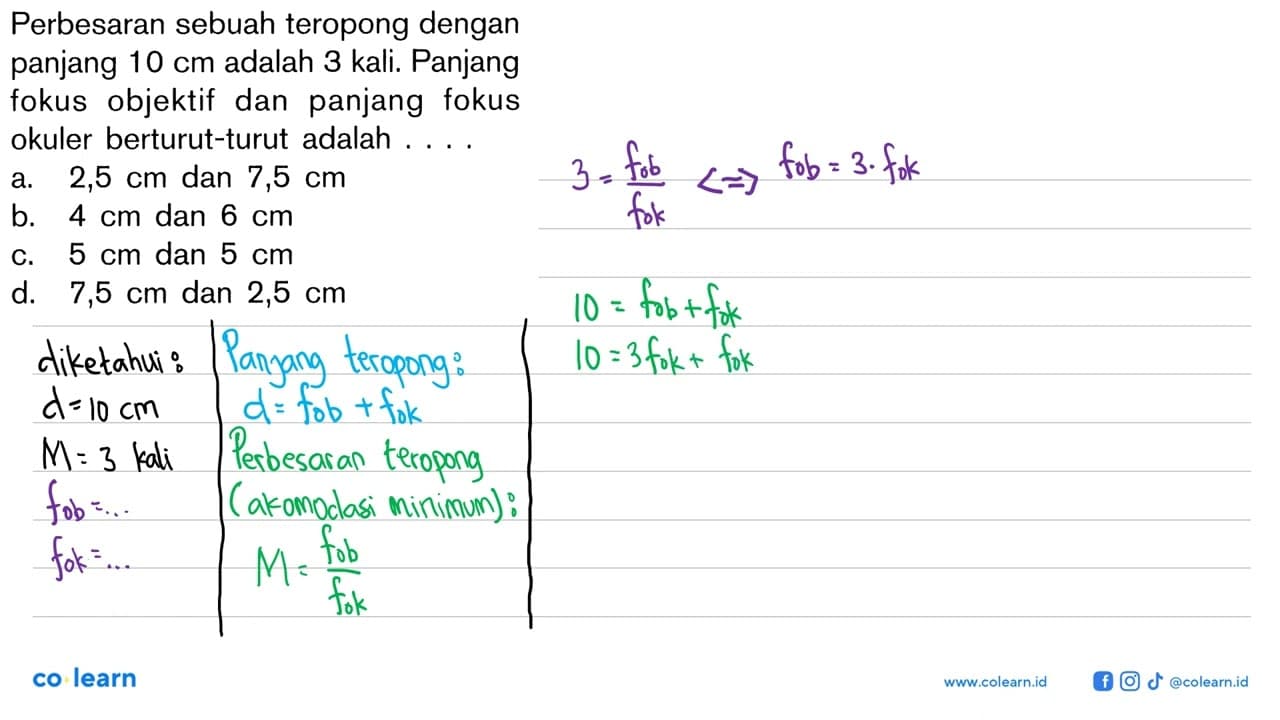 Perbesaran sebuah teropong dengan
panjang 10 cm adalah 3 kali. Panjang
fokus objektif dan panjang fokus
okuler berturut-turut adalah . . . .
a. 2,5 cm dan 7,5 cm
b. 4 cm dan 6 cm
c. 5 cm dan 5 cm
d. 7,5 cm dan 2,5 cm
diketahui:
d = 10 cm
M = 3 kali
fob = ...
fok = ...
Panjang teropong:
d = fob + fok
Perbesaran teropong
(akomodasi minimum):
M = fob / fok
3 = fob / fok <=> fob = 3 . fok
10 = fob + fok
10 = 3 fok + fok
co learn
www.colearn.id
@colearn.id